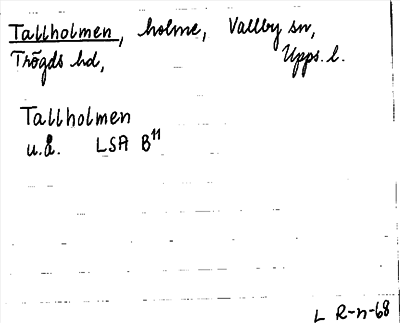 Tallholmen, holme, Vallby sn,
Trögds hd, Upps. l.
Tallholmen
u.å. LSA B11
L R-n-68